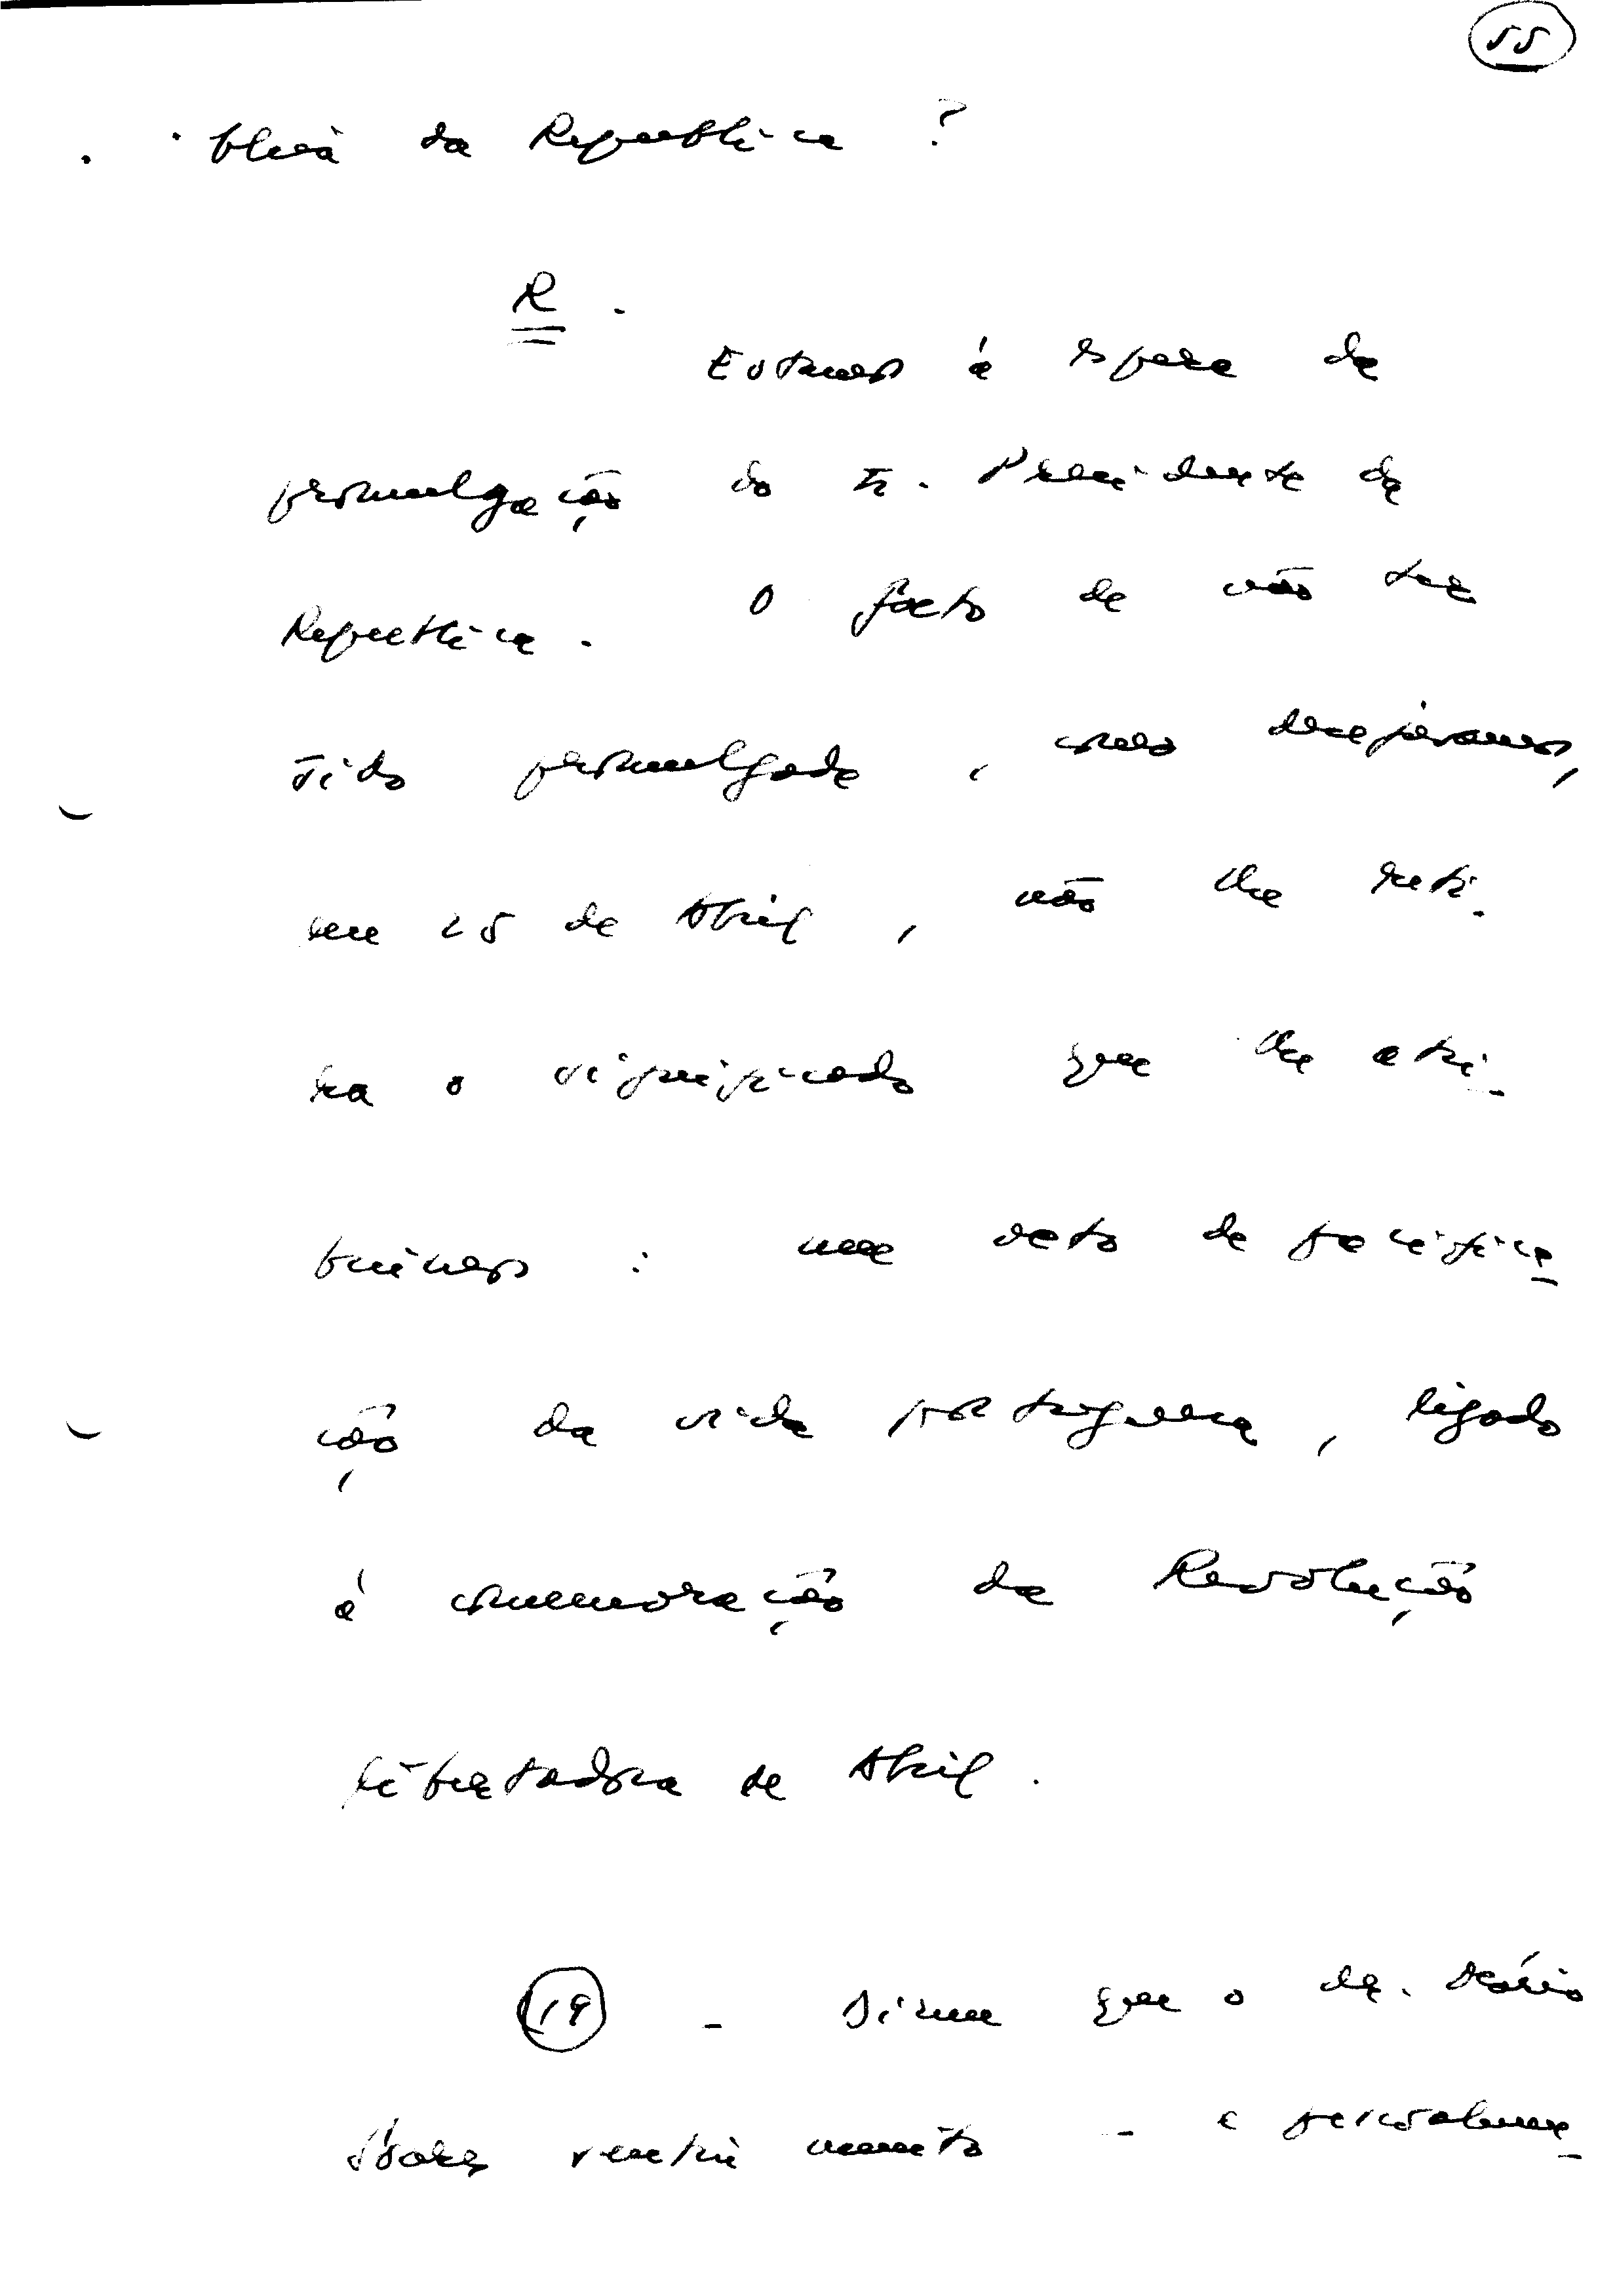 55
bleia da República ?
R.
Estamos à espera da
promulgação do Sr. Presidente da
República. O facto de não ter
sido promulgada, como desejávamos,
em 25 de Abril, não lhe reti-
ra o significado que lhe atri-
buímos : um acto de pacifica-
ção da vida portuguesa, ligado
à comemoração da Revolução
libertadora de Abril.
19 - Disse que o Dr. Mário
Soares sentiu muito - e